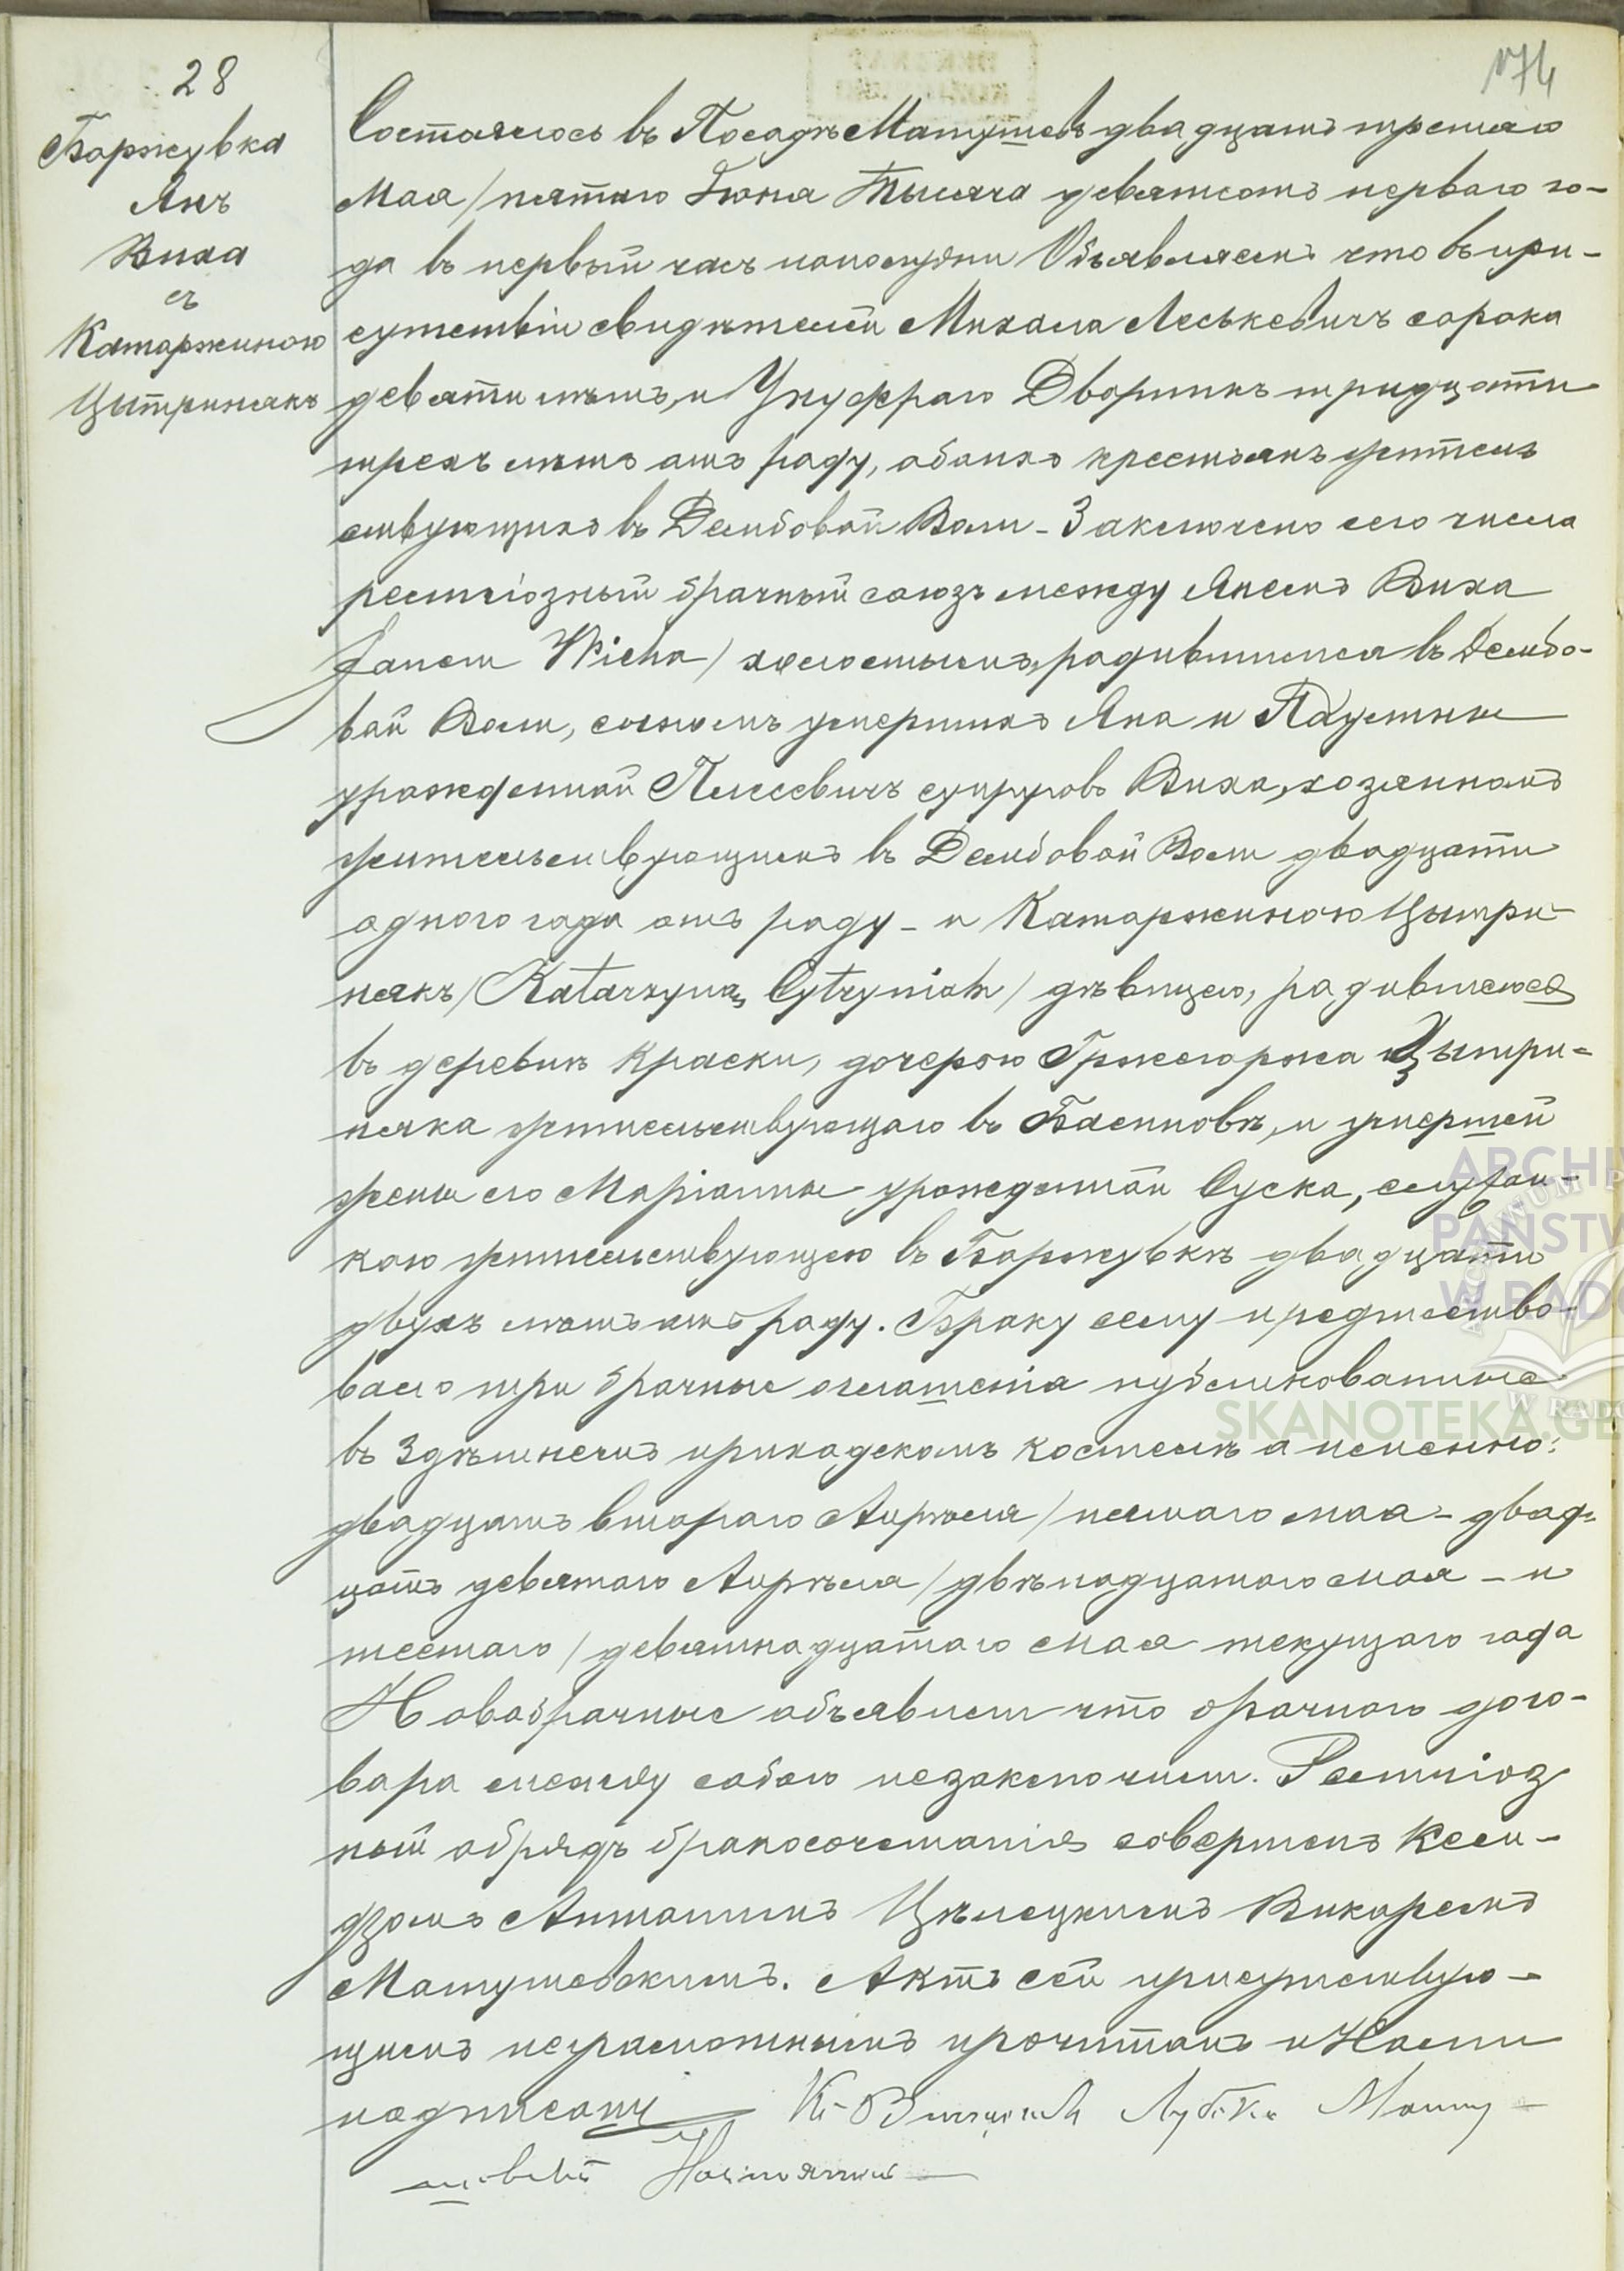 28
174
Боржувка
Янъ
Виха
съ
Катаржиною
Цытринякъ
Состоялось въ Посадѣ Матушевъ двадцать третьяго
Мая / пятаго Іюня Тысяча девятьсотъ перваго го-
да въ первый часъ пополудни Объявляемъ что въ при-
сутствіи свидѣтелей Михала Леськевичъ сорока
девяти лѣтъ, и Унуфраго Дворникъ тридцати
трехъ лѣтъ отъ роду, обоихъ крестьянъ житель
ствующихъ въ Дембовой Воли - Заключено сего числа
религіозный брачный союзъ между Янемъ Виха
Janem Wicha / холостымъ, родившимся въ Дембо-
вой Воли, сыномъ умершихъ Яна и Паулины
урожденной Пилсевичъ супруговъ Виха, хозяиномъ
жительствующимъ въ Дембовой Воли двадцати
одного года отъ роду - и Катаржиною Цытри-
някъ / Katarzyną Cytryniak / дѣвицею, родившеюся
въ деревнѣ Краски, дочерою Гржегоржа Цытри-
няка жительствующаго въ Басиновѣ, и умершей
жены его Маріанны урожденной Суска, служан-
кою жительствующею въ Боржувкѣ двадцати
двухъ лѣтъ отъ роду. Браку сему предшество-
вало три брачные оглашенія публикованные
въ Здѣшнемъ приходскомъ костелѣ а именно:
двадцать втораго Апрѣля / пятаго мая - двад-
цать девятаго Апрѣля / двѣнадцатаго мая - и
шестаго / девятнадцатаго мая текущаго года
Новобрачные объявили что брачнаго дого-
вора между собою незаключили. Религіоз
ный обрядъ бракосочетанія совершенъ Ксен-
дзомъ Антонимъ Цѣлецкимъ Викаремъ
Матушевскимъ. Актъ сей присутствую-
щимъ неграмотнымъ прочитанъ и Нами
подписанъ Кс. Матушевскій Настоятель